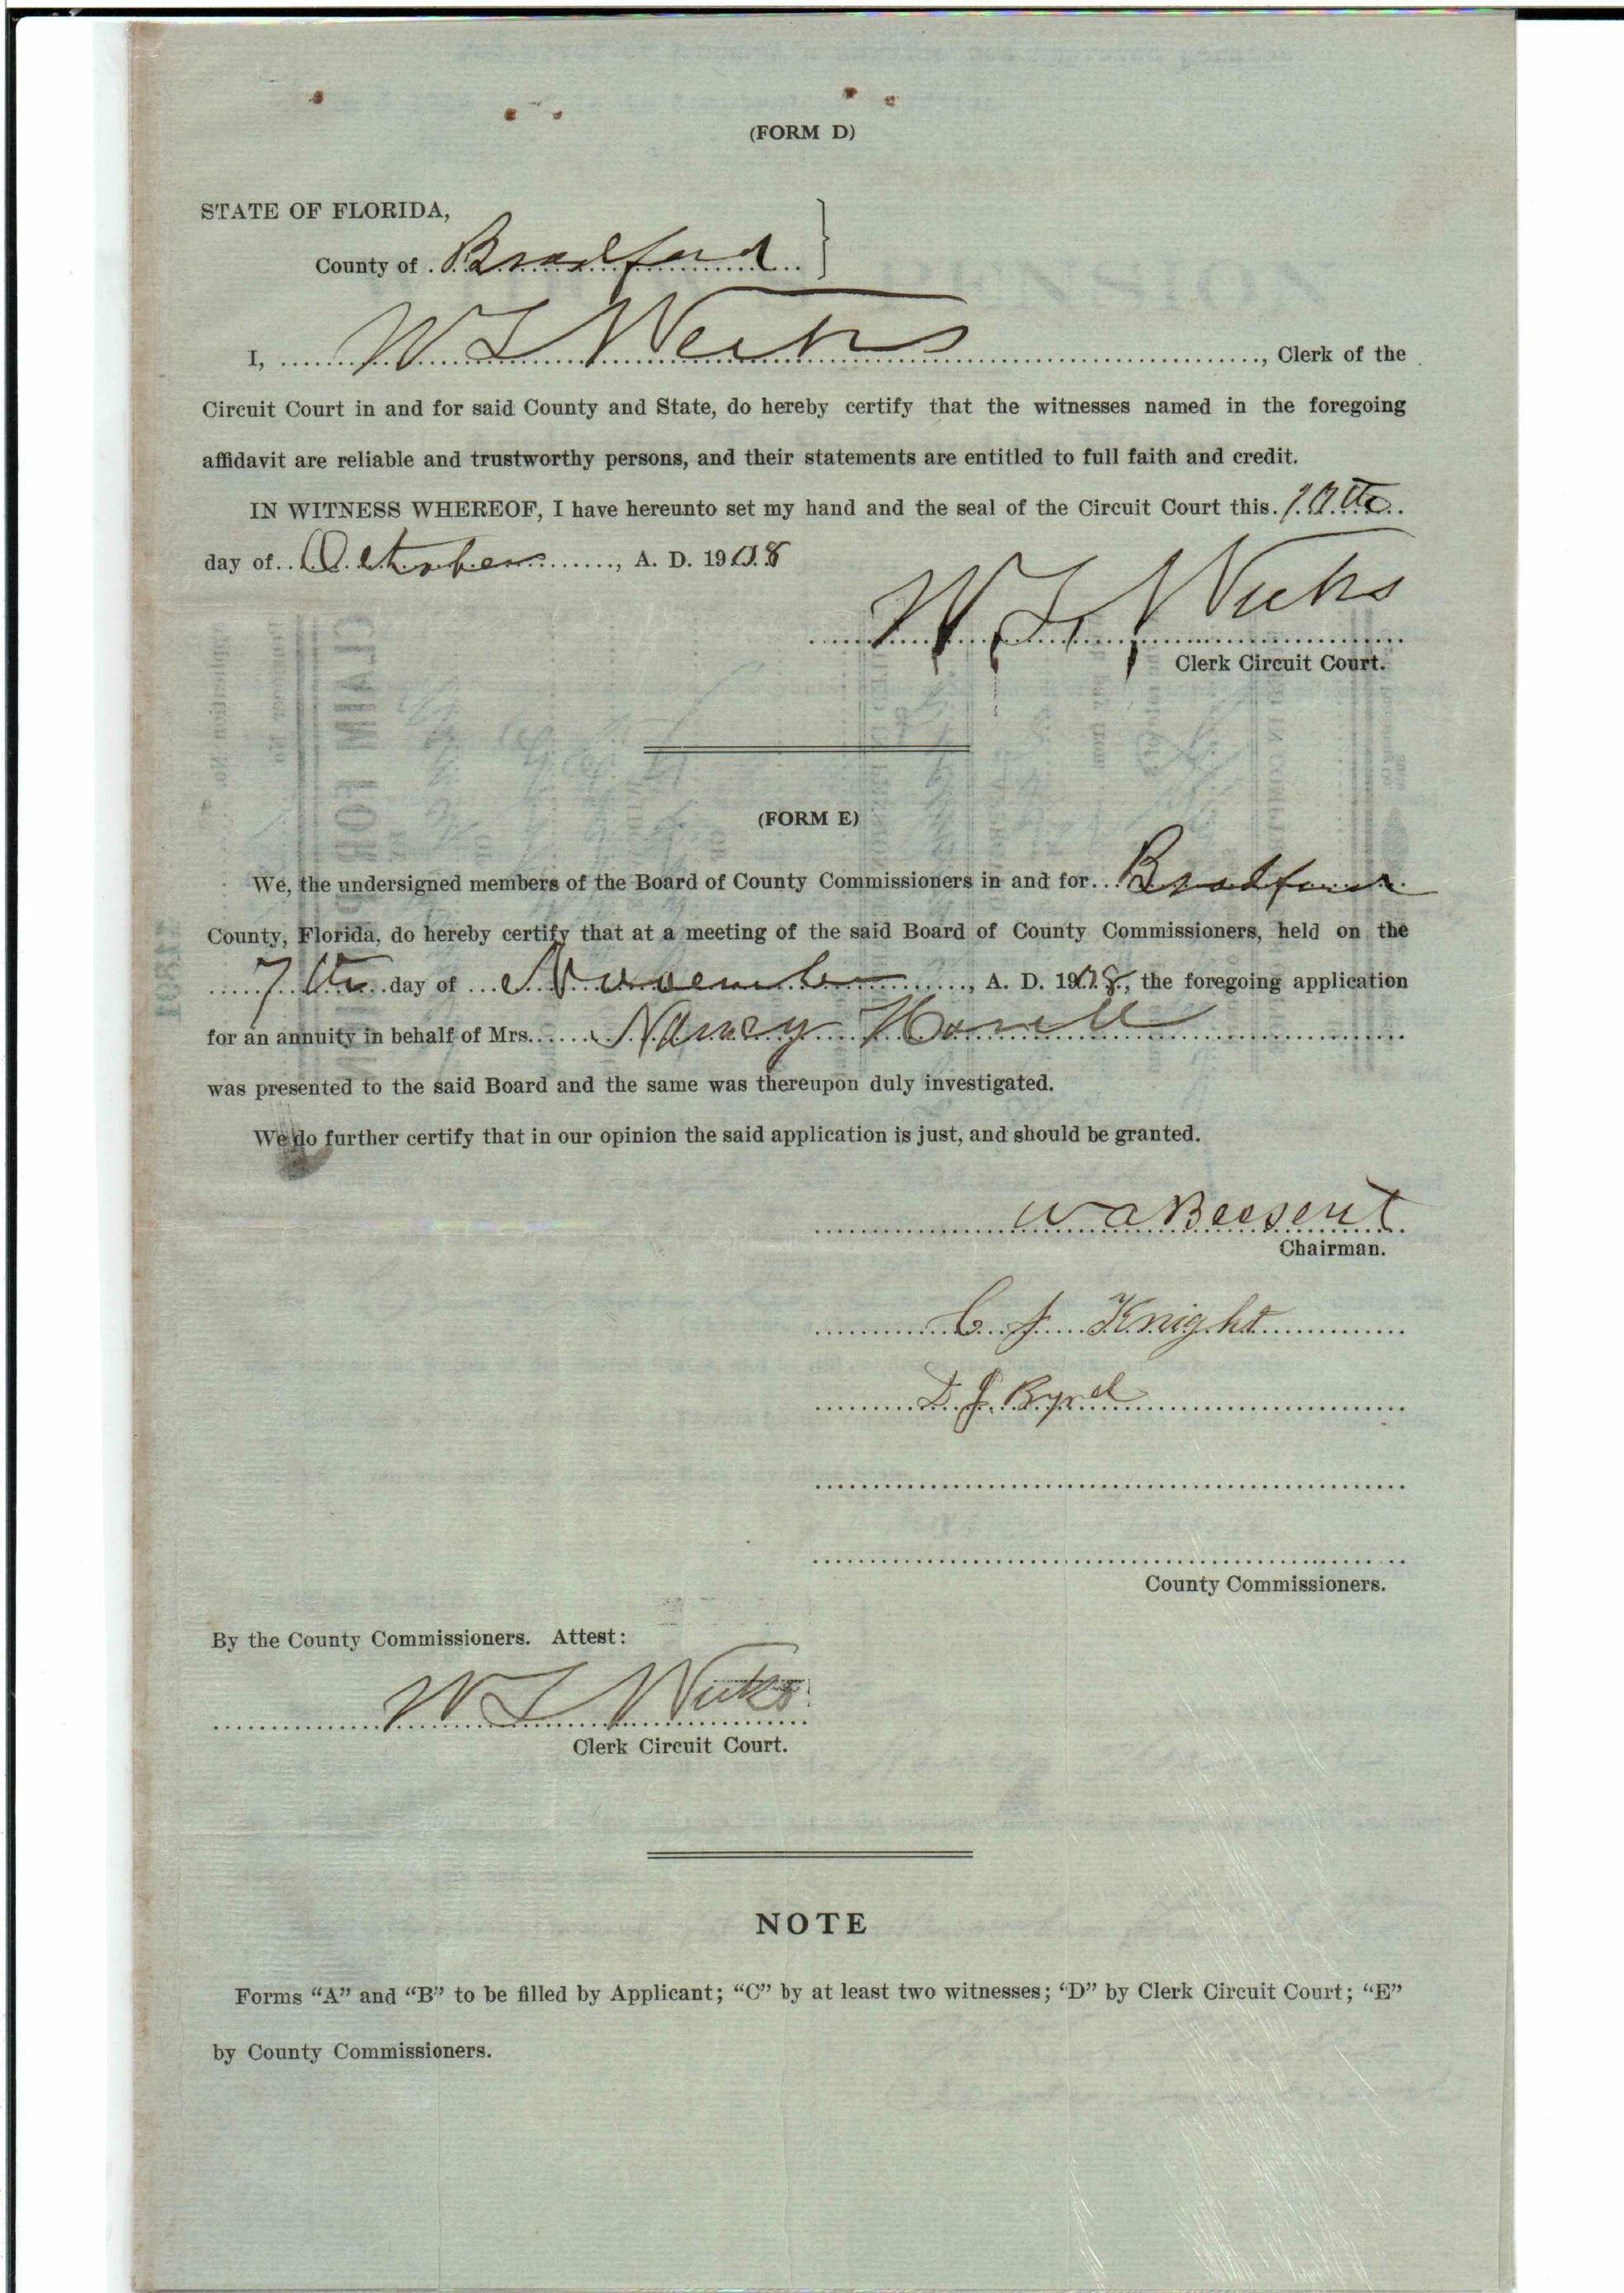 (FORM D)
STATE OF FLORIDA,
County of Bradford
I, W L Weeks, Clerk of the
Circuit Court in and for said County and State, do hereby certify that the witnesses named in the foregoing
affidavit are reliable and trustworthy persons, and their statements are entitled to full faith and credit.
IN WITNESS WHEREOF, I have hereunto set my hand and the seal of the Circuit Court this
day of October, A. D. 1908
W L Weeks
Clerk Circuit Court.
(FORM E)
We, the undersigned members of the Board of County Commissioners in and for Bradford
County, Florida, do hereby certify that at a meeting of the said Board of County Commissioners, held on the
7th day of November, A. D. 1908, the foregoing application
for an annuity in behalf of Mrs. Nancy
was presented to the said Board and the same was thereupon duly investigated.
We do further certify that in our opinion the said application is just, and should be granted.
W A
Chairman.
C J Knight
D J Byrd
County Commissioners.
By the County Commissioners. Attest:
W L Weeks
Clerk Circuit Court.
NOTE
Forms “A” and “B” to be filled by Applicant; “C” by at least two witnesses; ‘D” by Clerk Circuit Court; “E”
by County Commissioners.